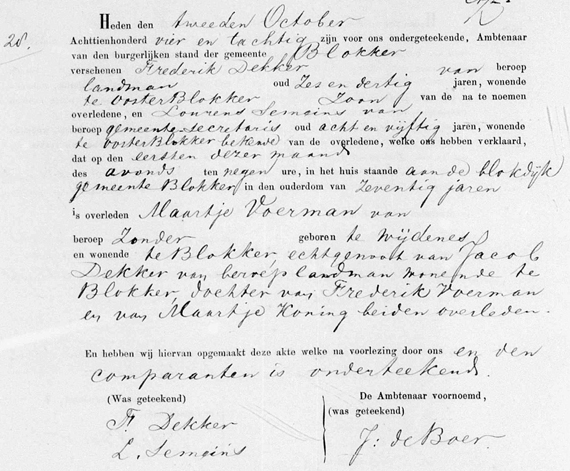 Heden den tweeden October
28.
Achttienhonderd vier en tachtig zijn voor ons ondergeteekende, Ambtenaar
van den burgerlijken stand der gemeente Blokker
verschenen Frederik Dekker van beroep
landman oud Zes en dertig jaren, wonende
te Ooster Blokker Zoon van de na te noemen
overledene, en Lourens Semeins van
beroep gemeente-secretaris oud acht en vijftig jaren, wonende
te Ooster Blokker bekende van de overledene, welke ons hebben verklaard,
dat op den eersten dezer maand
des avonds ten negen ure, in het huis staande aan de blokdijk
gemeente Blokker, in den ouderdom van Zeventig jaren
is overleden Maartje Voerman van
beroep Zonder geboren te Wijdenes
en wonende te Blokker, echtgenoot van Jacob
Dekker van beroep landman wonende te
Blokker, dochter van Frederik Voerman
en van Maartje Koning beiden overleden.
En hebben wij hiervan opgemaakt deze akte welke na voorlezing door ons en den
comparanten is onderteekend.
(Was geteekend) De Ambtenaar voornoemd,
(was geteekend)
F. Dekker
L. Semeins
J: de Boer.